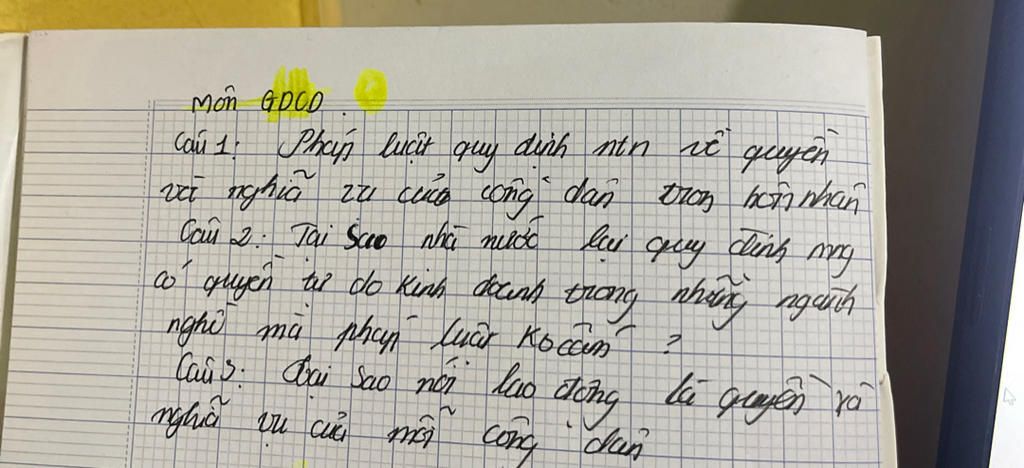 Môn GDCD.
Câu 1: Pháp luật quy định ntn về quyền
và nghĩa vụ của công dân trong hôn nhân
Câu 2: Tại sao nhà nước lại quy định mng
có quyền tự do kinh doanh trong những ngành
nghề mà pháp luật ko cấm ?
Câu 3: Tại sao nói lao động là quyền và
nghĩa vụ của mỗi công dân